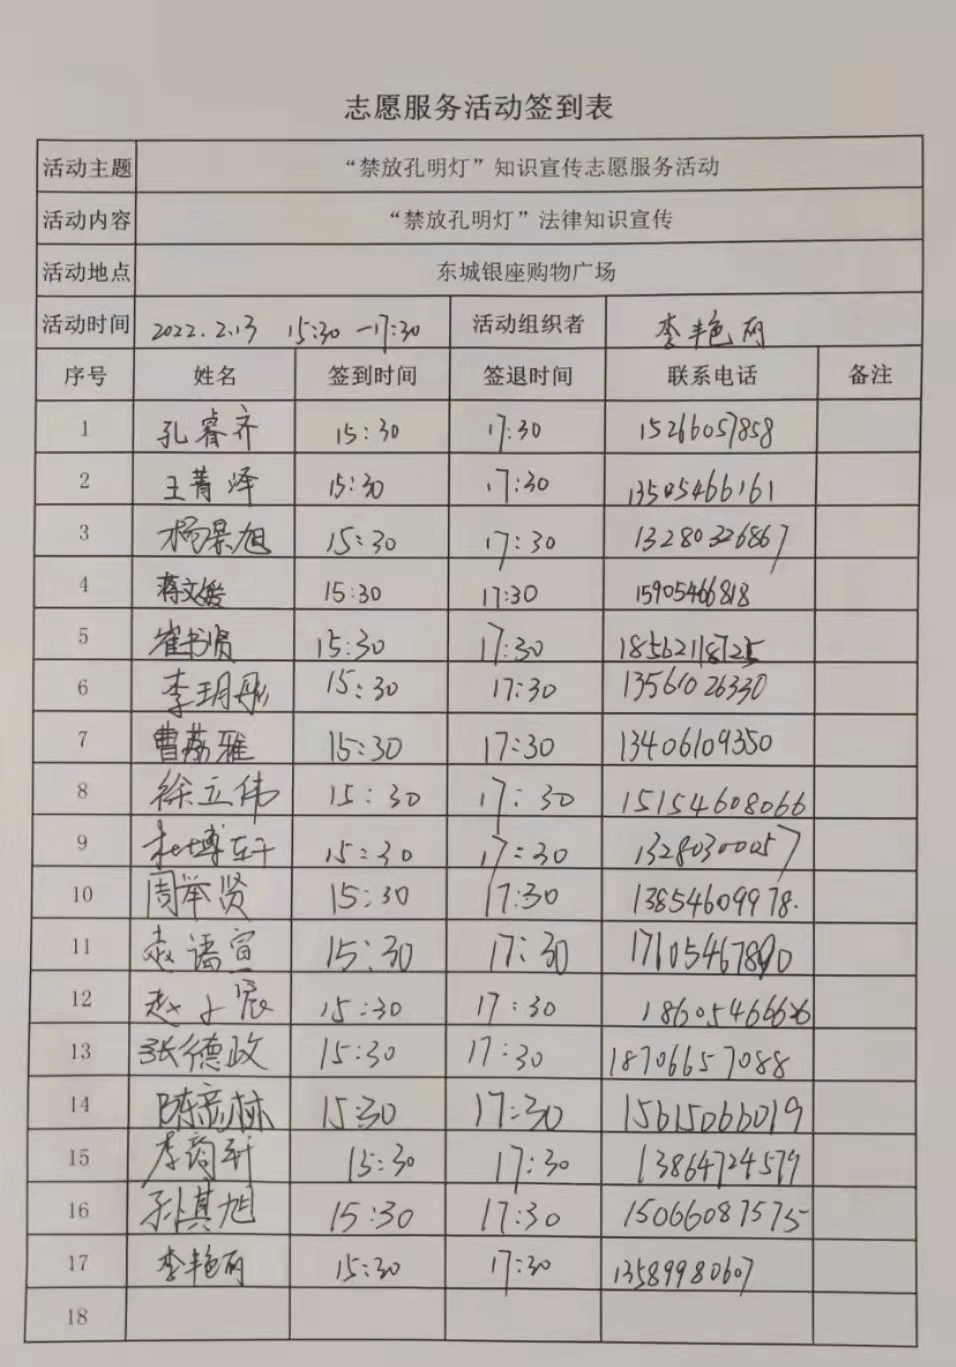 志愿服务活动签到表
活动主题 “禁放孔明灯”知识宣传志愿服务活动
活动内容 “禁放孔明灯”法律知识宣传
活动地点 东城银座购物广场
活动时间 2022.2.13 15:30-17:30 活动组织者 李艳丽
序号 姓名 签到时间 签退时间 联系电话 备注
1 孔睿齐 15:30 17:30 15266057858
2 王菁泽 15:30 17:30 13505466161
3 杨景旭 15:30 17:30 13280326867
4 蒋文媛 15:30 17:30 15905466818
5 崔书贤 15:30 17:30 18562118725
6 李玥彤 15:30 17:30 13561026330
7 曹荔雅 15:30 17:30 13406109350
8 徐立伟 15:30 17:30 15154608066
9 杜博轩 15:30 17:30 13280300057
10 周举贤 15:30 17:30 13854609978.
11 赵语萱 15:30 17:30 17105467890
12 赵子宸 15:30 17:30 18605466626
13 张德政 15:30 17:30 18706657088
14 陈彦林 15:30 17:30 15615066019
15 李韵轩 15:30 17:30 13864724579
16 孙其旭 15:30 17:30 15066087575
17 李艳丽 15:30 17:30 13589980607
18